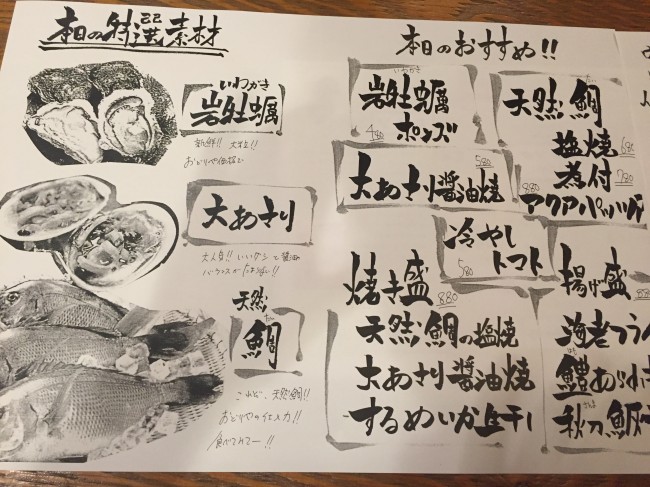 本日の特選素材
いわがき
岩牡蠣
新鮮!! 大粒!!
おどりやの仕入
大あさり
大人気!! いいダシと醤油
バランスがたまらない!!
天然
たい
鯛
これぞ、天然鯛!!
おどりやの仕入力!!
食べてみてー!!
本日のおすすめ!!
いわがき
岩牡蠣
ポンズ
480
大あさり醤油焼
580
天然鯛
たい
塩焼
680
煮付
780
アクアパッツァ
880
冷やし
トマト
580
焼き盛
880
天然鯛の塩焼
大あさり醤油焼
するめいか一夜干し
揚げ盛
海老フライ
はも
鱧あられ
さんま
秋刀魚